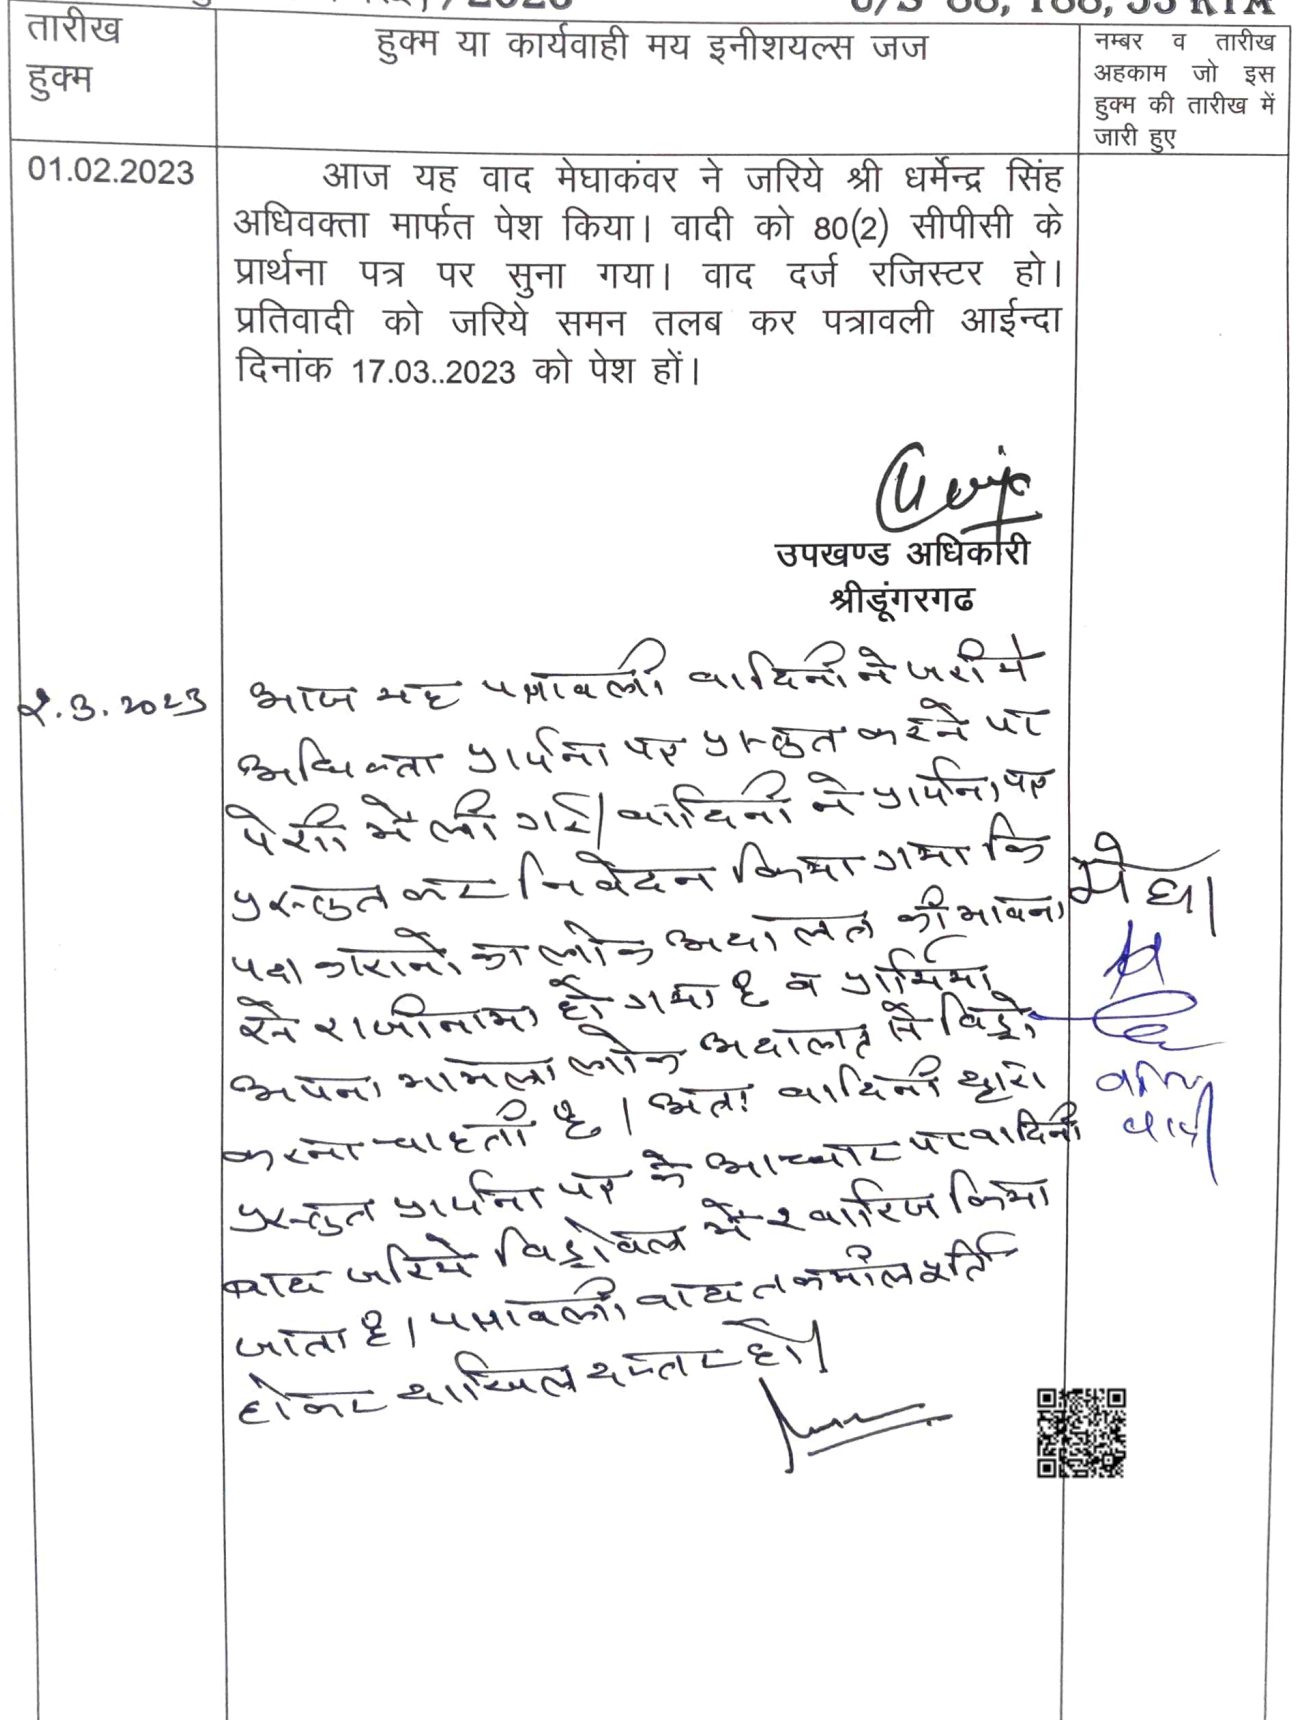 /2023 U/S 88, 188, 53 RTA
तारीख
हुक्म
हुक्म या कार्यवाही मय इनीशयल्स जज
नम्बर व तारीख
अहकाम जो इस
हुक्म की तारीख में
जारी हुए
01.02.2023
आज यह वाद मेघाकंवर ने जरिये श्री धर्मेन्द्र सिंह
अधिवक्ता मार्फत पेश किया। वादी को 80(2) सीपीसी के
प्रार्थना पत्र पर सुना गया। वाद दर्ज रजिस्टर हो।
प्रतिवादी को जरिये समन तलब कर पत्रावली आईन्दा
दिनांक 17.03..2023 को पेश हों।
उपखण्ड अधिकारी
श्रीडूंगरगढ
2.3.2023
आज यह पत्रावली वादिनी ने जरीये
अधिवक्ता प्रार्थना पत्र प्रस्तुत करने पर
पेशी में ली गई। वादिनी ने प्रार्थना पत्र
प्रस्तुत कर निवेदन किया गया कि
पक्षकारानो का लोक अदालत की भावना
से राजीनामा हो गया है व प्रार्थिया
अपना मामला लोक अदालत में विड्रो
करना चाहती है। अतः वादिनी द्वारा
प्रस्तुत प्रार्थना पत्र के आधार पर वादिनी
वाद जरिये विड्रोवल में खारिज किया
जाता है। पत्रावली बाद तकमील शर्त
होकर दाखिल दफ्तर हो।
मेघा